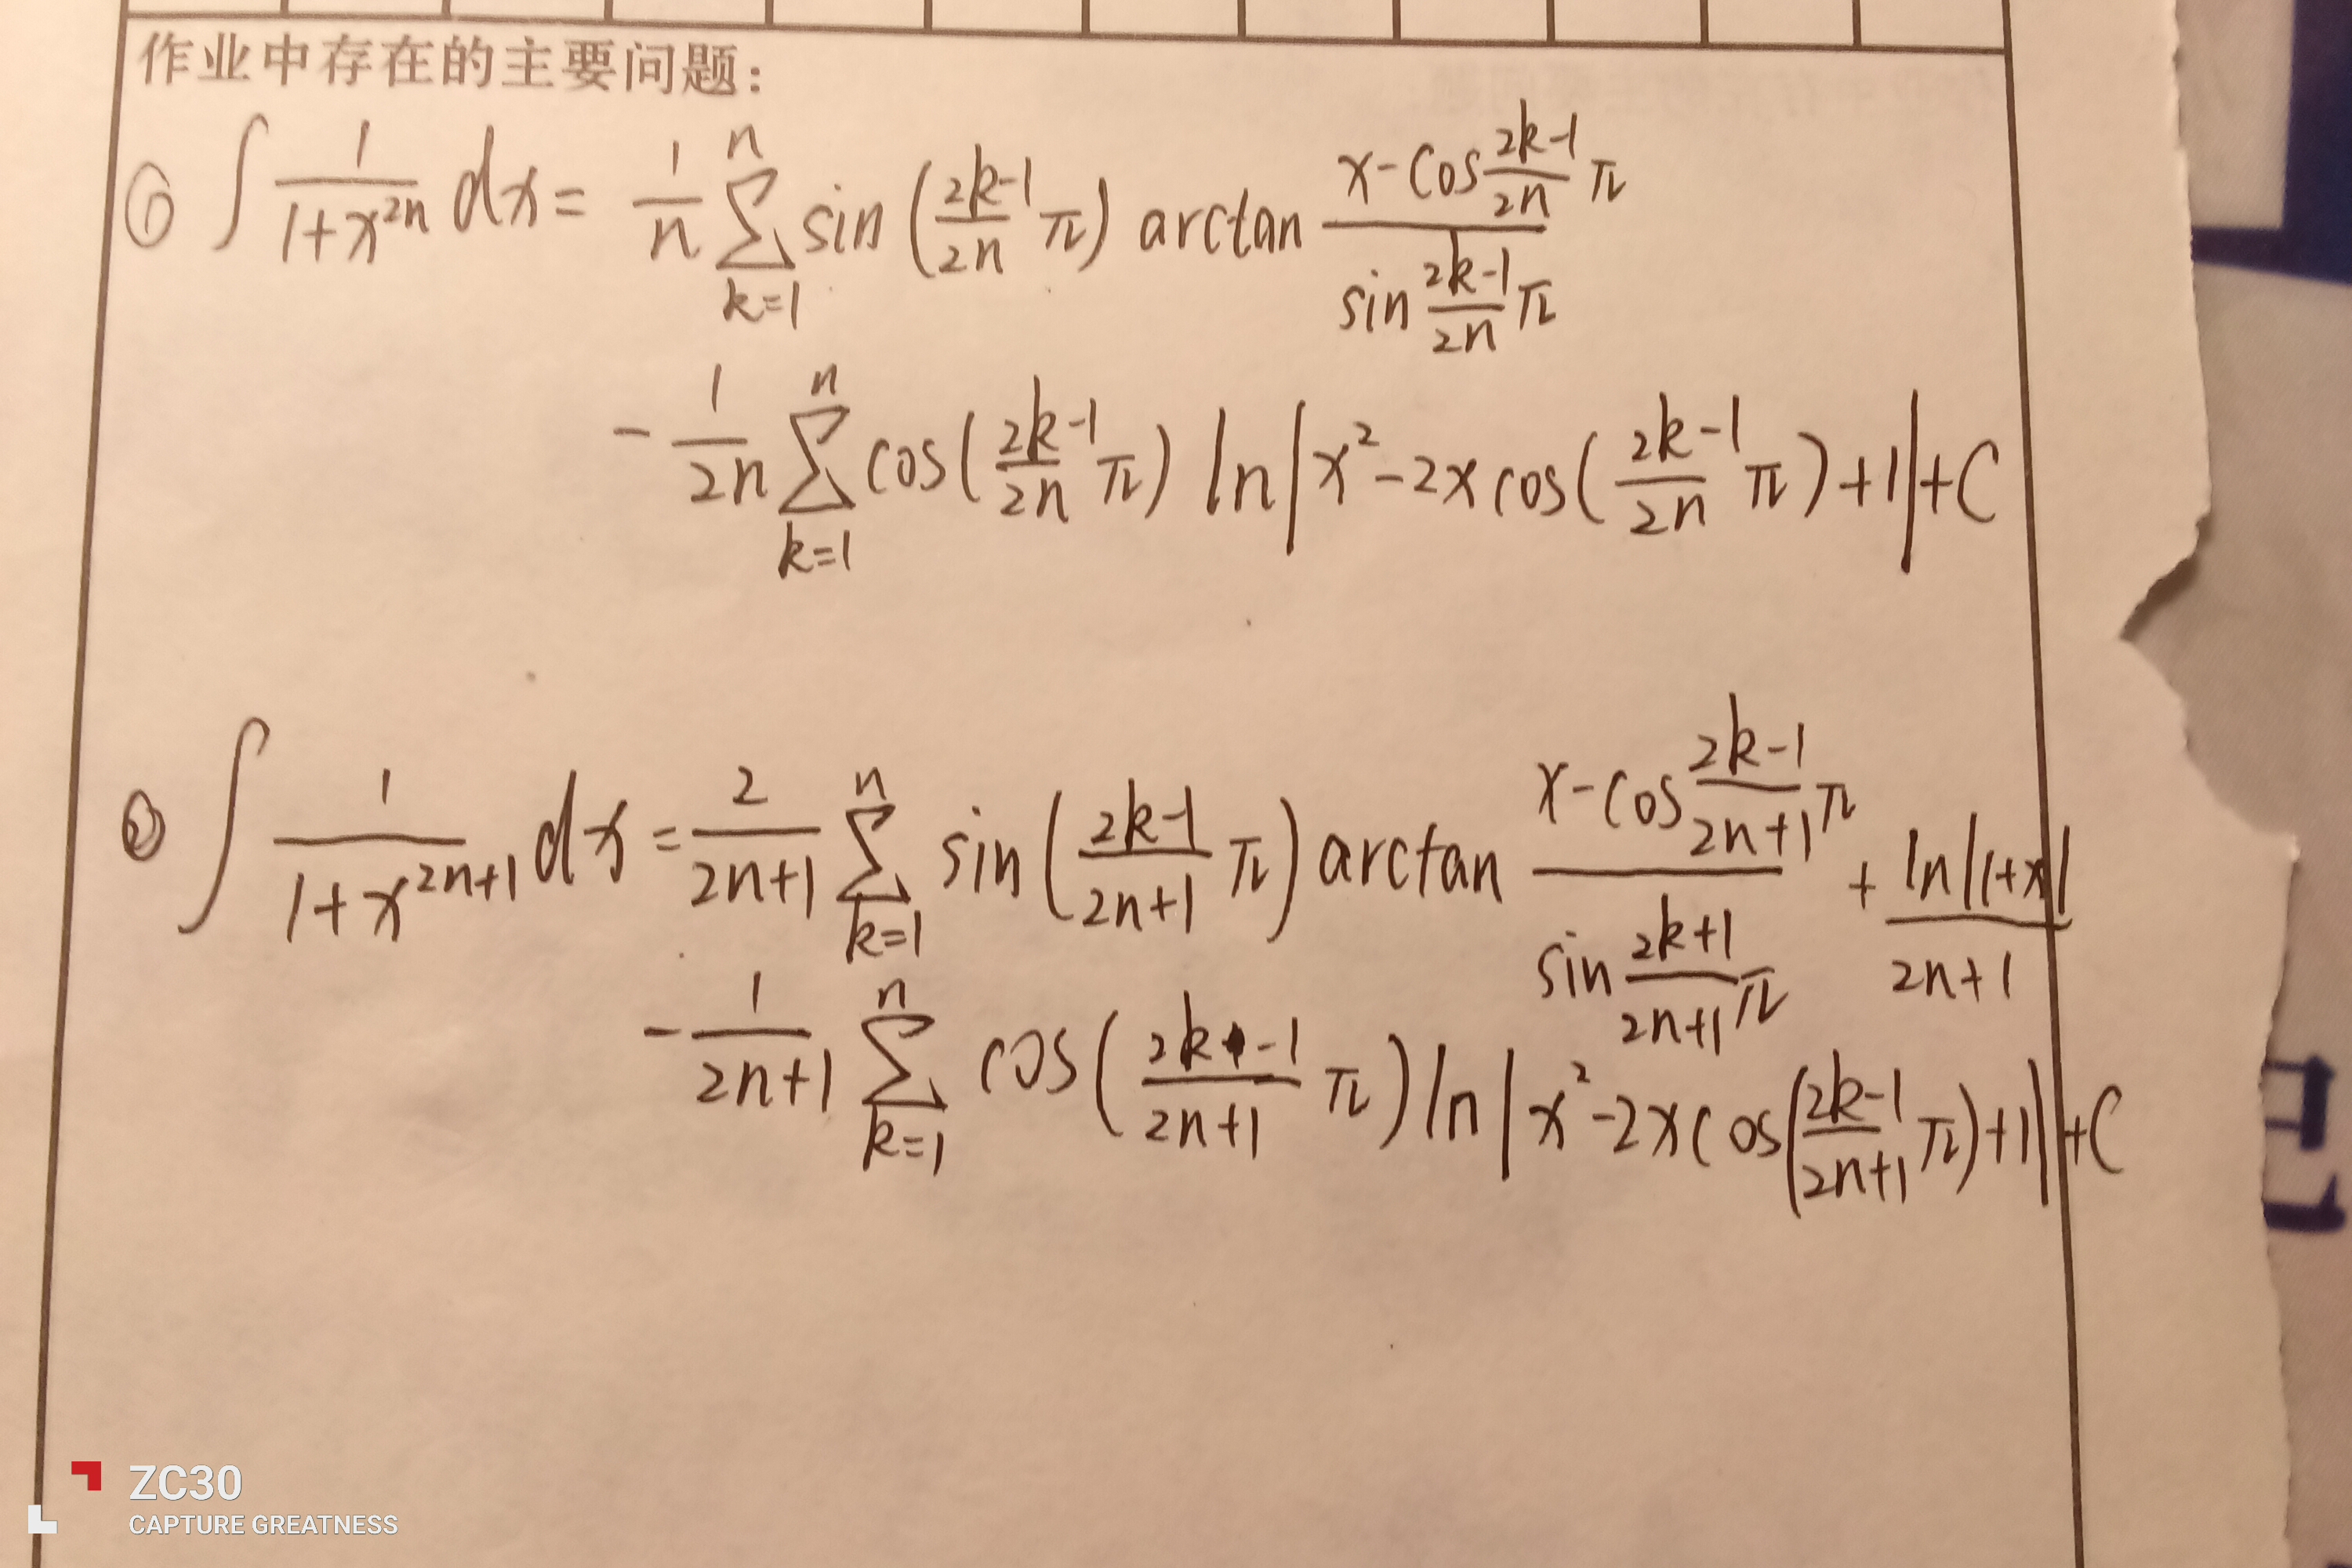 作业中存在的主要问题:
① ∫ \frac{1}{1+x^{2n}} dx = \frac{1}{n} \sum_{k=1}^{n} sin(\frac{2k-1}{2n}π) arctan \frac{x-cos\frac{2k-1}{2n}π}{sin\frac{2k-1}{2n}π}
- \frac{1}{2n} \sum_{k=1}^{n} cos(\frac{2k-1}{2n}π) ln|x^2-2x cos(\frac{2k-1}{2n}π)+1|+C
② ∫ \frac{1}{1+x^{2n+1}} dx = \frac{2}{2n+1} \sum_{k=1}^{n} sin(\frac{2k-1}{2n+1}π) arctan \frac{x-cos\frac{2k-1}{2n+1}π}{sin\frac{2k+1}{2n+1}π} + \frac{ln|1+x|}{2n+1}
- \frac{1}{2n+1} \sum_{k=1}^{n} cos(\frac{2k-1}{2n+1}π) ln|x^2-2x cos(\frac{2k-1}{2n+1}π)+1|+C
ZC30
CAPTURE GREATNESS